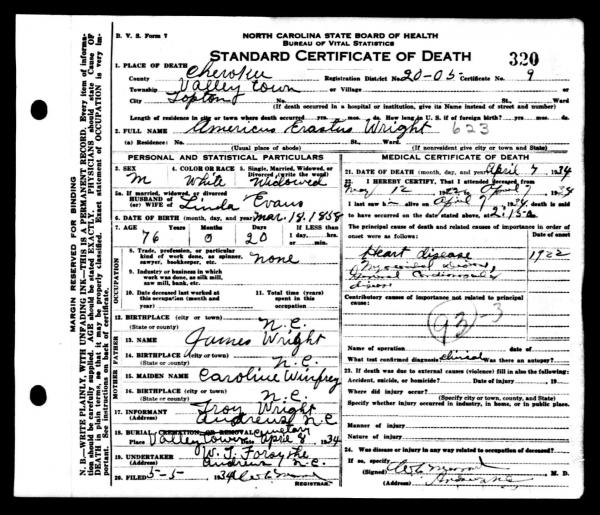 B. V. S. Form 7
NORTH CAROLINA STATE BOARD OF HEALTH
BUREAU OF VITAL STATISTICS
STANDARD CERTIFICATE OF DEATH
320
1. PLACE OF DEATH
County Cherokee Registration District No. 20-05- Certificate No. 9
Township Valley Town or Village
City Topton No. St. Ward
(If death occurred in a hospital or institution, give its Name instead of street and number)
Length of residence in city or town where death occurred yrs. mos. da. How long in U. S. if of foreign birth? yrs. mos. ds.
2. FULL NAME Americus Erastus Wright 623
(a) Residence: No. St. Ward
(Usual place of abode) (If nonresident give city or town and State)
PERSONAL AND STATISTICAL PARTICULARS
3. SEX 4. COLOR OR RACE 5. Single, Married, Widowed, or Divorced (write the word)
M White Widowed
5a. If married, widowed, or divorced
HUSBAND of
(or) WIFE of Linda Evans
6. DATE OF BIRTH (month, day, and year) Mar. 18. 1858
7. AGE Years Months Days If LESS than
1 day, hrs.
or min.
76 0 20
OCCUPATION
8. Trade, profession, or particular kind of work done, as spinner, sawyer, bookkeeper, etc. None
9. Industry or business in which work was done, as silk mill, saw mill, bank, etc.
10. Date deceased last worked at this occupation (month and year)
11. Total time (years) spent in this occupation
12. BIRTHPLACE (city or town)
(State or county) N.C.
FATHER
13. NAME James Wright
14. BIRTHPLACE (city or town)
(State or county) N.C.
MOTHER
15. MAIDEN NAME Caroline Winfrey
16. BIRTHPLACE (city or town)
(State or county) N.C.
17. INFORMANT Troy Wright
(Address) Andrews N C
18. BURIAL, CREMATION, OR REMOVAL
Place Valley Town Cemetery Date April 8, 1934
19. UNDERTAKER W. T. Forsythe
(Address) Andrews, N.C.
20. FILED 5-5- 1934
REGISTRAR.
MEDICAL CERTIFICATE OF DEATH
21. DATE OF DEATH (month, day, and year) April 7 1934
22. I HEREBY CERTIFY, That I attended deceased from
12 19 to April 7 1934
I last saw alive on April 7 1934, death is said
to have occurred on the date stated above, at 2:15 a m.
The principal cause of death and related causes of importance in order of onset were as follows: Date of onset
Heart disease 1922
Contributory causes of importance not related to principal cause:
93-3
Name of operation Date of
What test confirmed diagnosis? Clinical Was there an autopsy?
23. If death was due to external causes (violence) fill in also the following:
Accident, suicide, or homicide? Date of injury 19
Where did injury occur?
(Specify city or town, county, and State)
Specify whether injury occurred in industry, in home, or in public place.
Manner of injury
Nature of injury
24. Was disease or injury in any way related to occupation of deceased?
If so, specify
(Signed) M. D.
(Address) Andrews N.C.
MARGIN RESERVED FOR BINDING
N. B.—WRITE PLAINLY, WITH UNFADING INK—THIS IS A PERMANENT RECORD. Every item of information should be carefully supplied. AGE should be stated EXACTLY. PHYSICIANS should state Cause OF DEATH in plain terms, so that it may be properly classified. Exact statement of OCCUPATION is very important. See instructions on back of certificate.